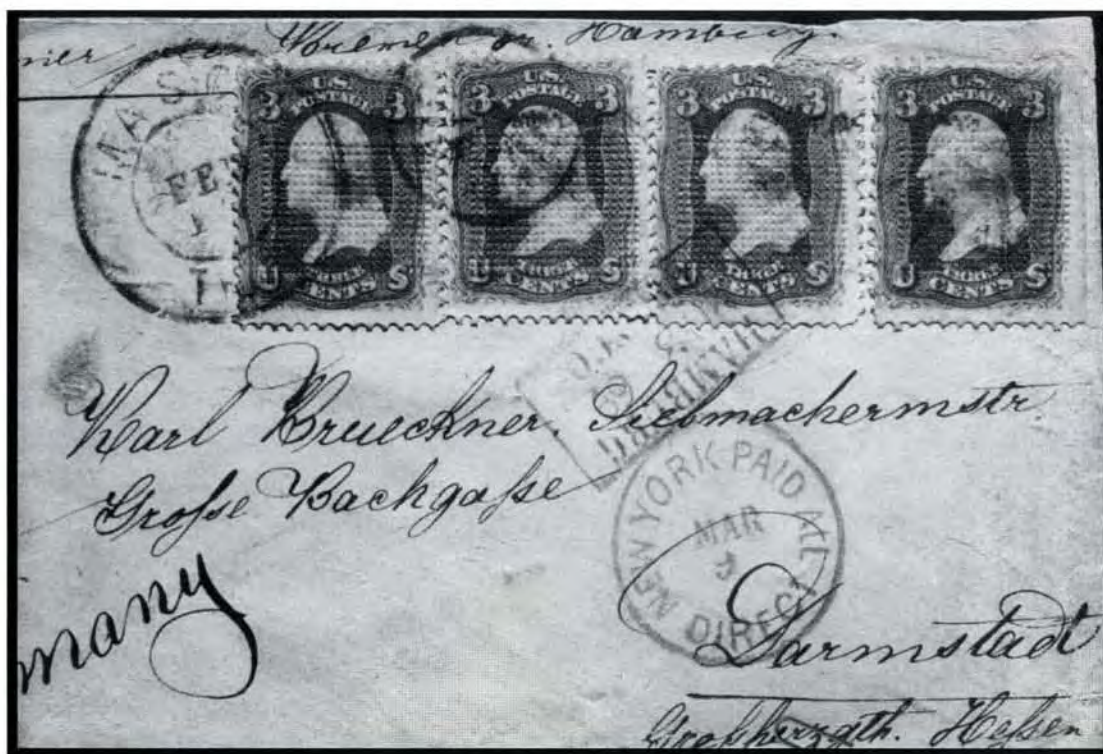 Bremen or. Hamburg.
MASCO
FE
1
3 U.S. POSTAGE 3
U THREE CENTS S
3 U.S. POSTAGE 3
U THREE CENTS S
3 U.S. POSTAGE 3
U THREE CENTS S
3 U.S. POSTAGE 3
U THREE CENTS S
HAMBURG
Karl Brueckner, Siebmachermstr.
Große Bachgaße
NEW YORK PAID ALL
MAR
DIRECT
many
Darmstadt
Großherzgth. Heßen